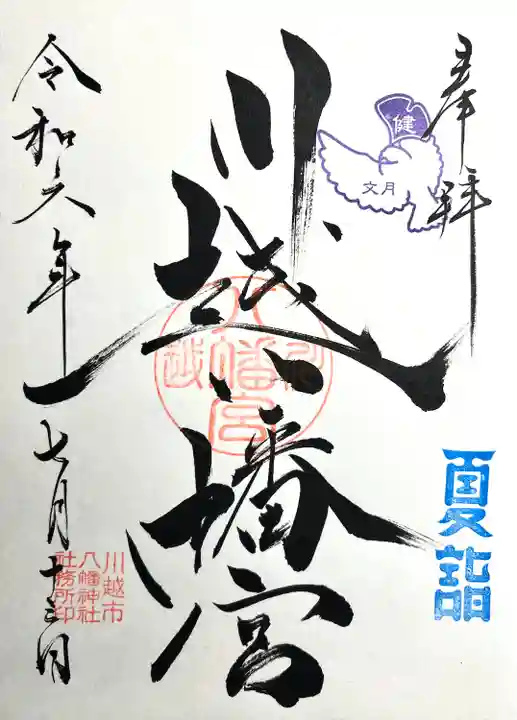 奉拝
健
文月
夏詣
川越八幡宮
川越
八幡宮
令和六年七月十三日
川越市
八幡神社
社務所印